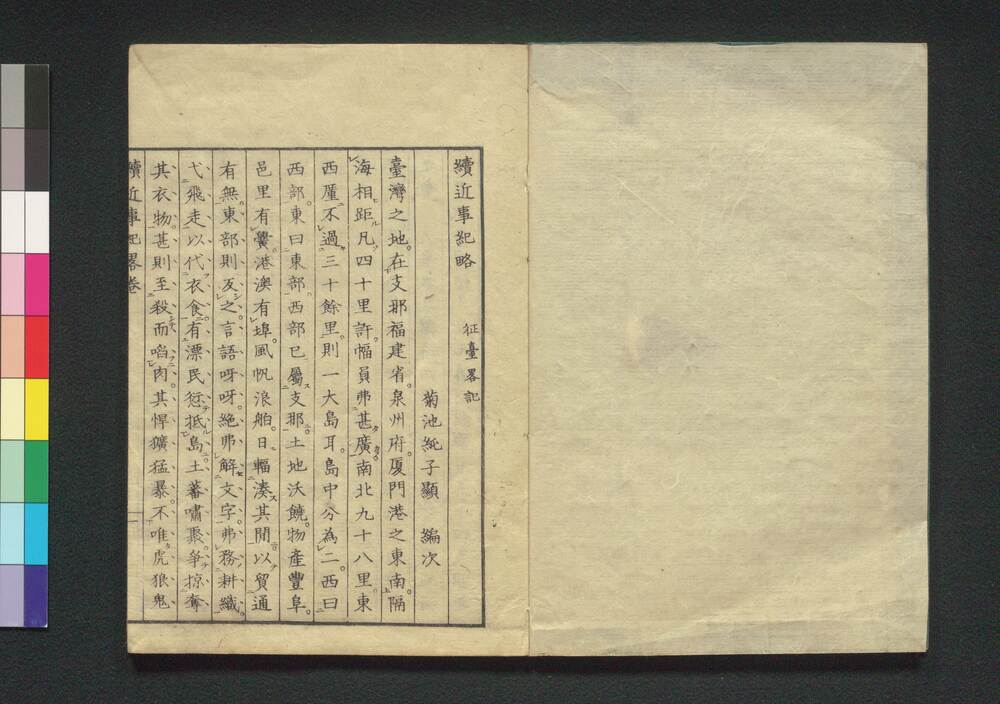 續近事紀略
征臺畧記
菊池純子顯 編次
臺灣之地。在支那福建省。泉州府。厦門港之東南。隔
海相距凡四十里許。幅員弗甚廣。南北九十八里東
西厪不過三十餘里。則一大島耳。島中分為二。西曰
西部。東曰東部。西部已屬支那。土地沃饒。物產豐阜。
邑里有黌。港澳有埠。風帆浪舶。日輻湊其間以貿通
有無。東部則反之。言語呀呀。絶弗解文字。弗務耕織。
弋飛走以代衣食。有漂民愆抵島。土蕃嘯聚。爭掠奪
其衣物。甚則至殺而啗肉。其悍獷猛暴。不唯虎狼鬼
續近事紀畧卷